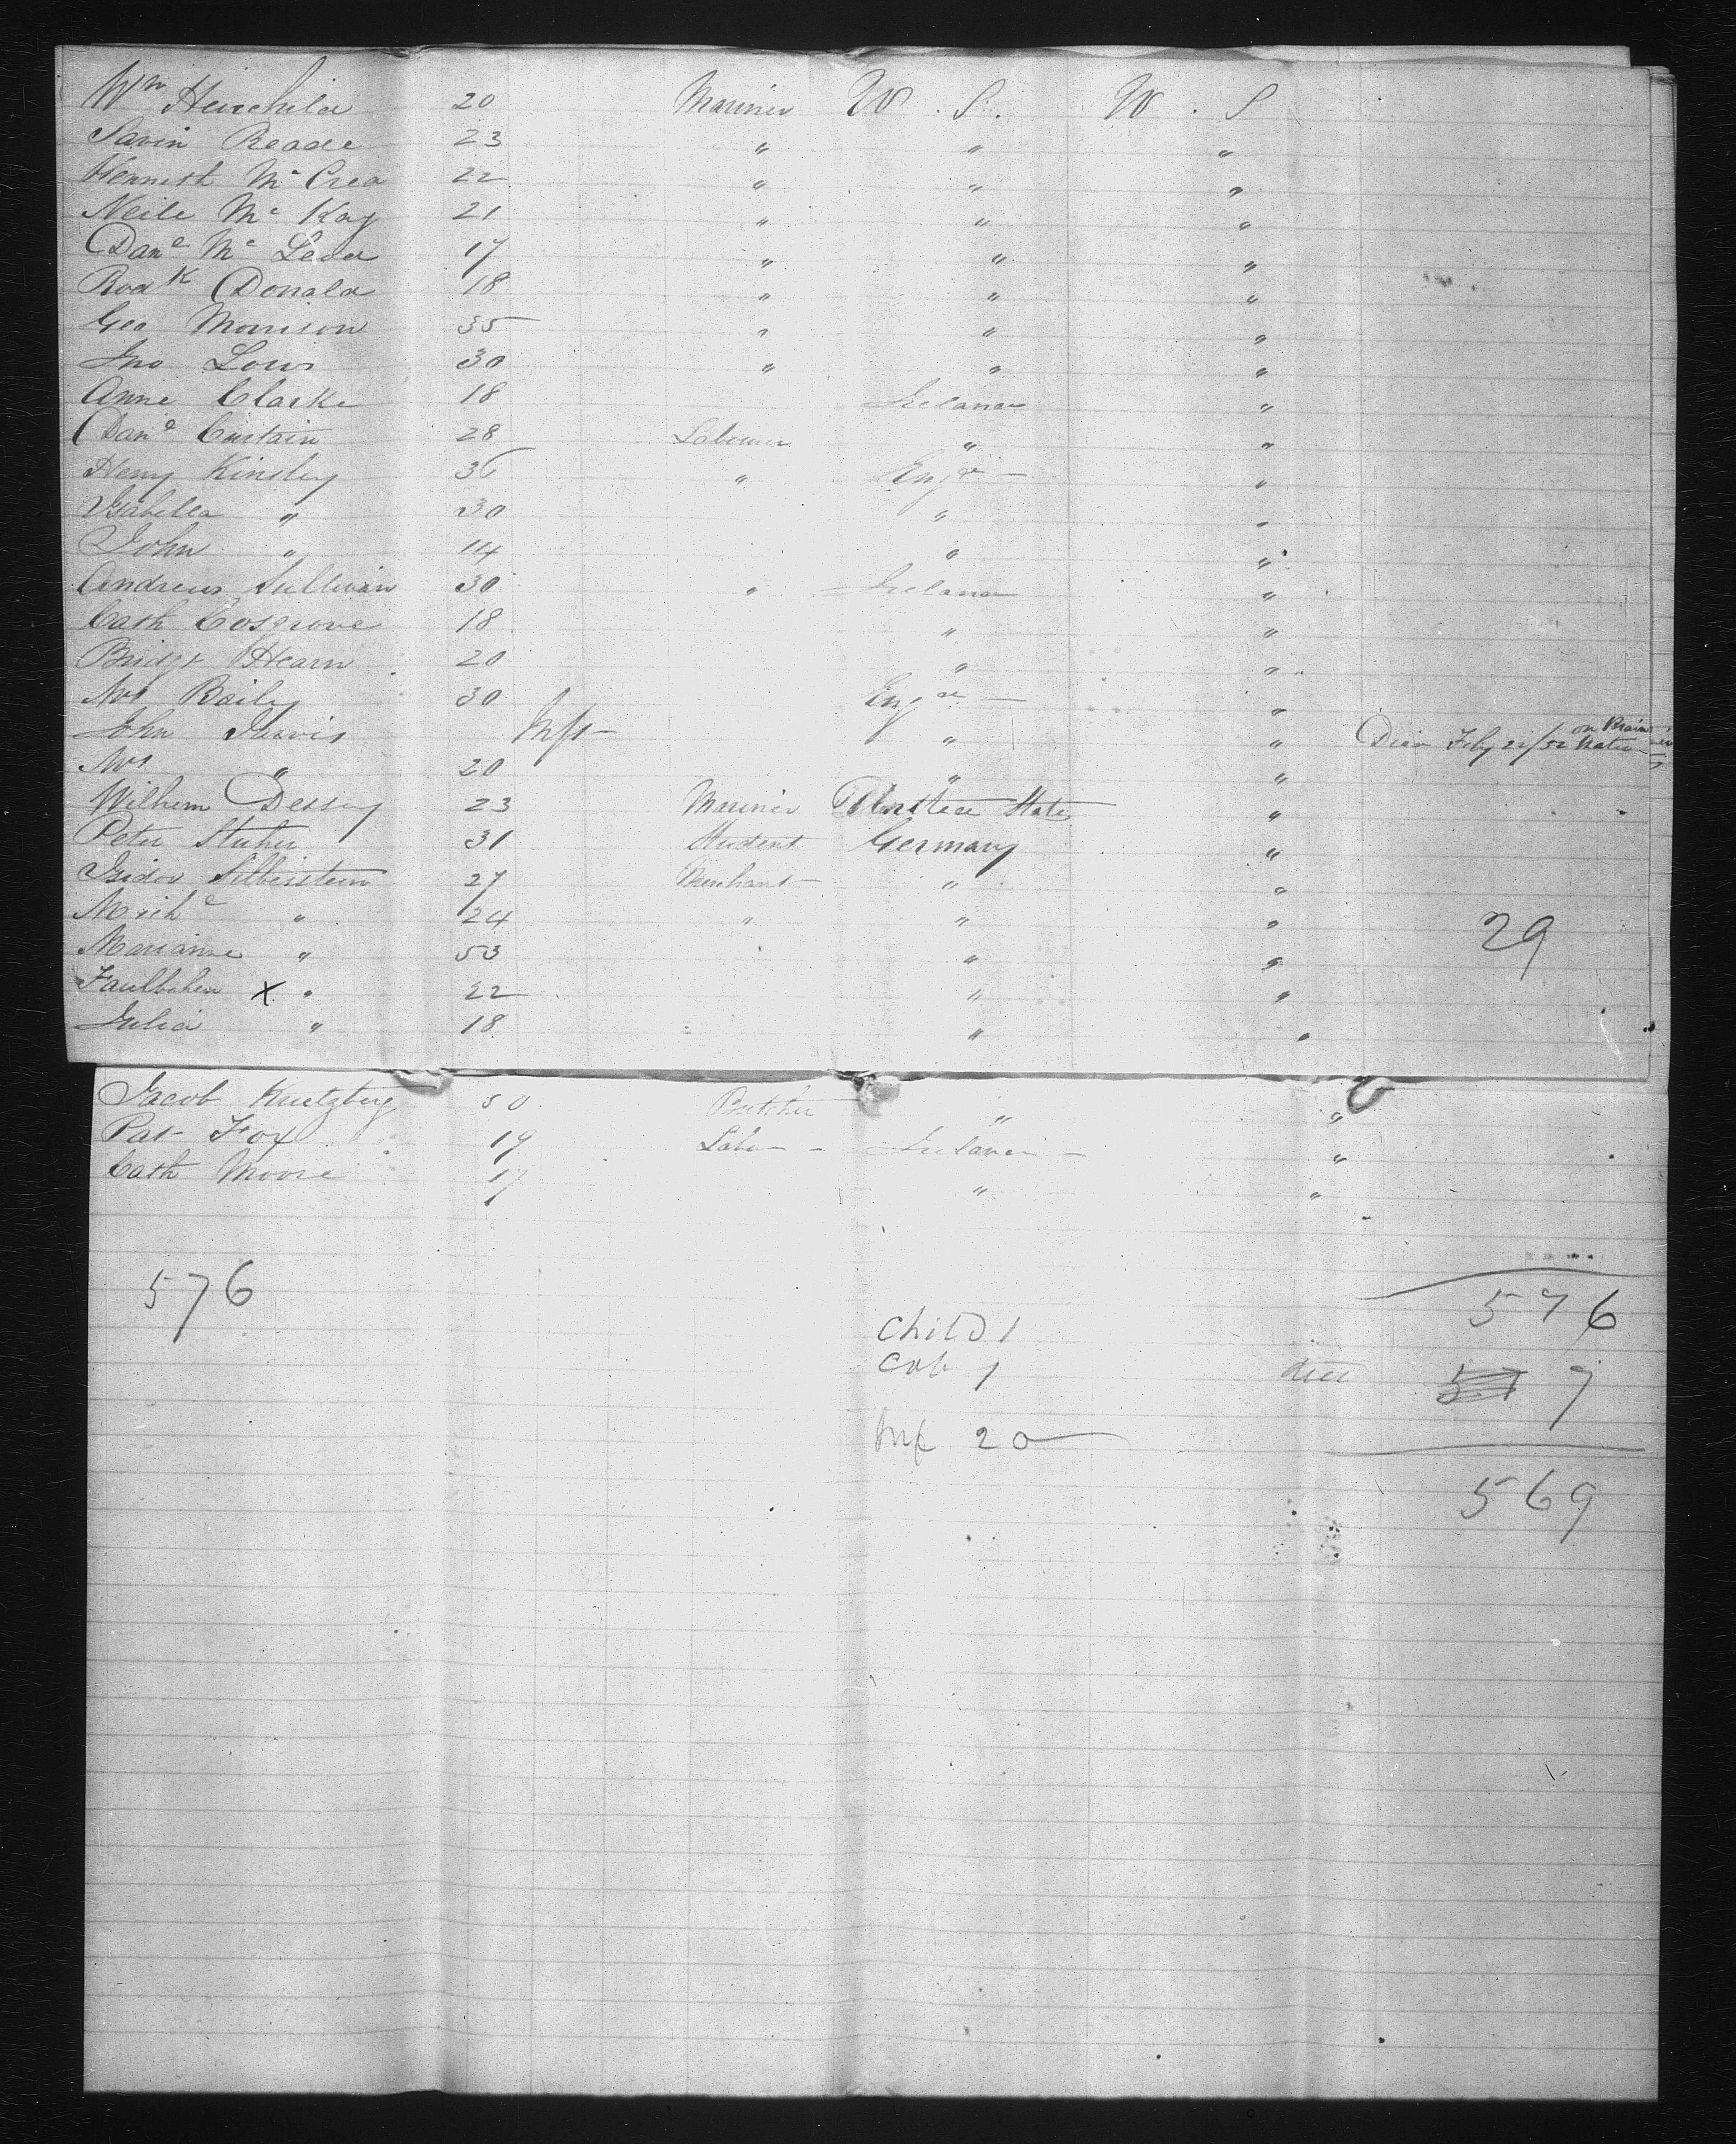 Wm Heuchila 20 Mariner U. S. U. S
Savin Reade 23 " " "
Kenneth Mc Crea 22 " " "
Neile Mc Kay 21 " " "
Danl Mc Leod 17 " " "
Rodk Donald 18 " " "
Geo Morrison 35 " " "
Jno Lows 30 " " "
Anne Clarke 18 Ireland "
Danl Curtain 28 Labourer " "
Henry Kinsley 36 " Engd "
Isabella " 30 " "
John " 14 " "
Andrew Sullivan 30 " Ireland "
Cath Cosgrove 18 " "
Bridgt Hearn 20 " "
Mrs Baily 30 Engd "
John Jarvis Inft " " Died Feby 22/52 on Brain
Mrs " 20 " "
Wilhem Dessey 23 Mariner United States "
Peter Stuher 31 Student Germany "
Isidor Silberstein 27 Merchant " "
Michl " 24 " " "
29
Marianne " 53 " "
Faulbchen X " 22 " "
Julia " 18 " "
Jacob Kuetzberg 50 Butcher " "
Pat Fox 19 Labr Ireland "
Cath Moore 17 " "
576
576
Child 1
Cab 1 died 7
Inf 20
569